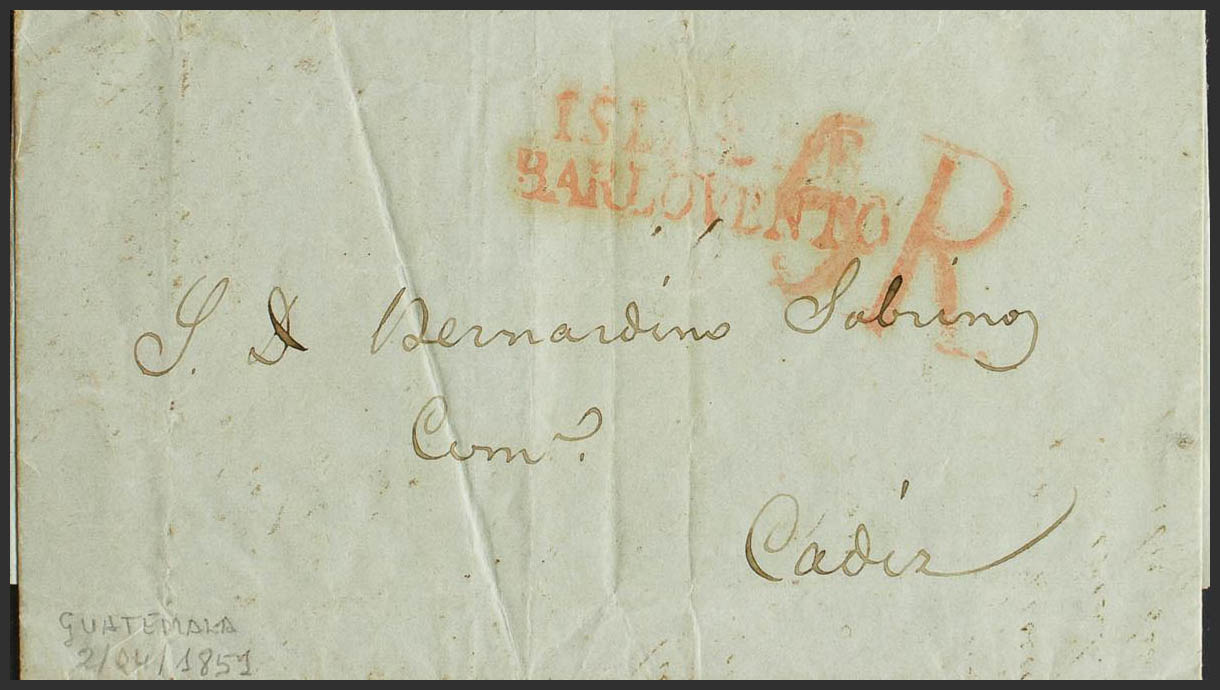 ISLAS DE
BARLOVENTO
5R
S. D Bernardino Sobrino
Com.º
Cadiz
GUATEMALA
2/04/1851